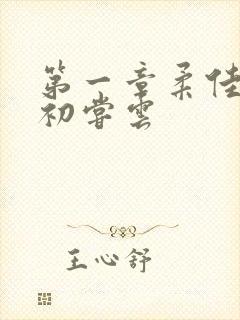 第一章柔佳
初尝雲
王心舒